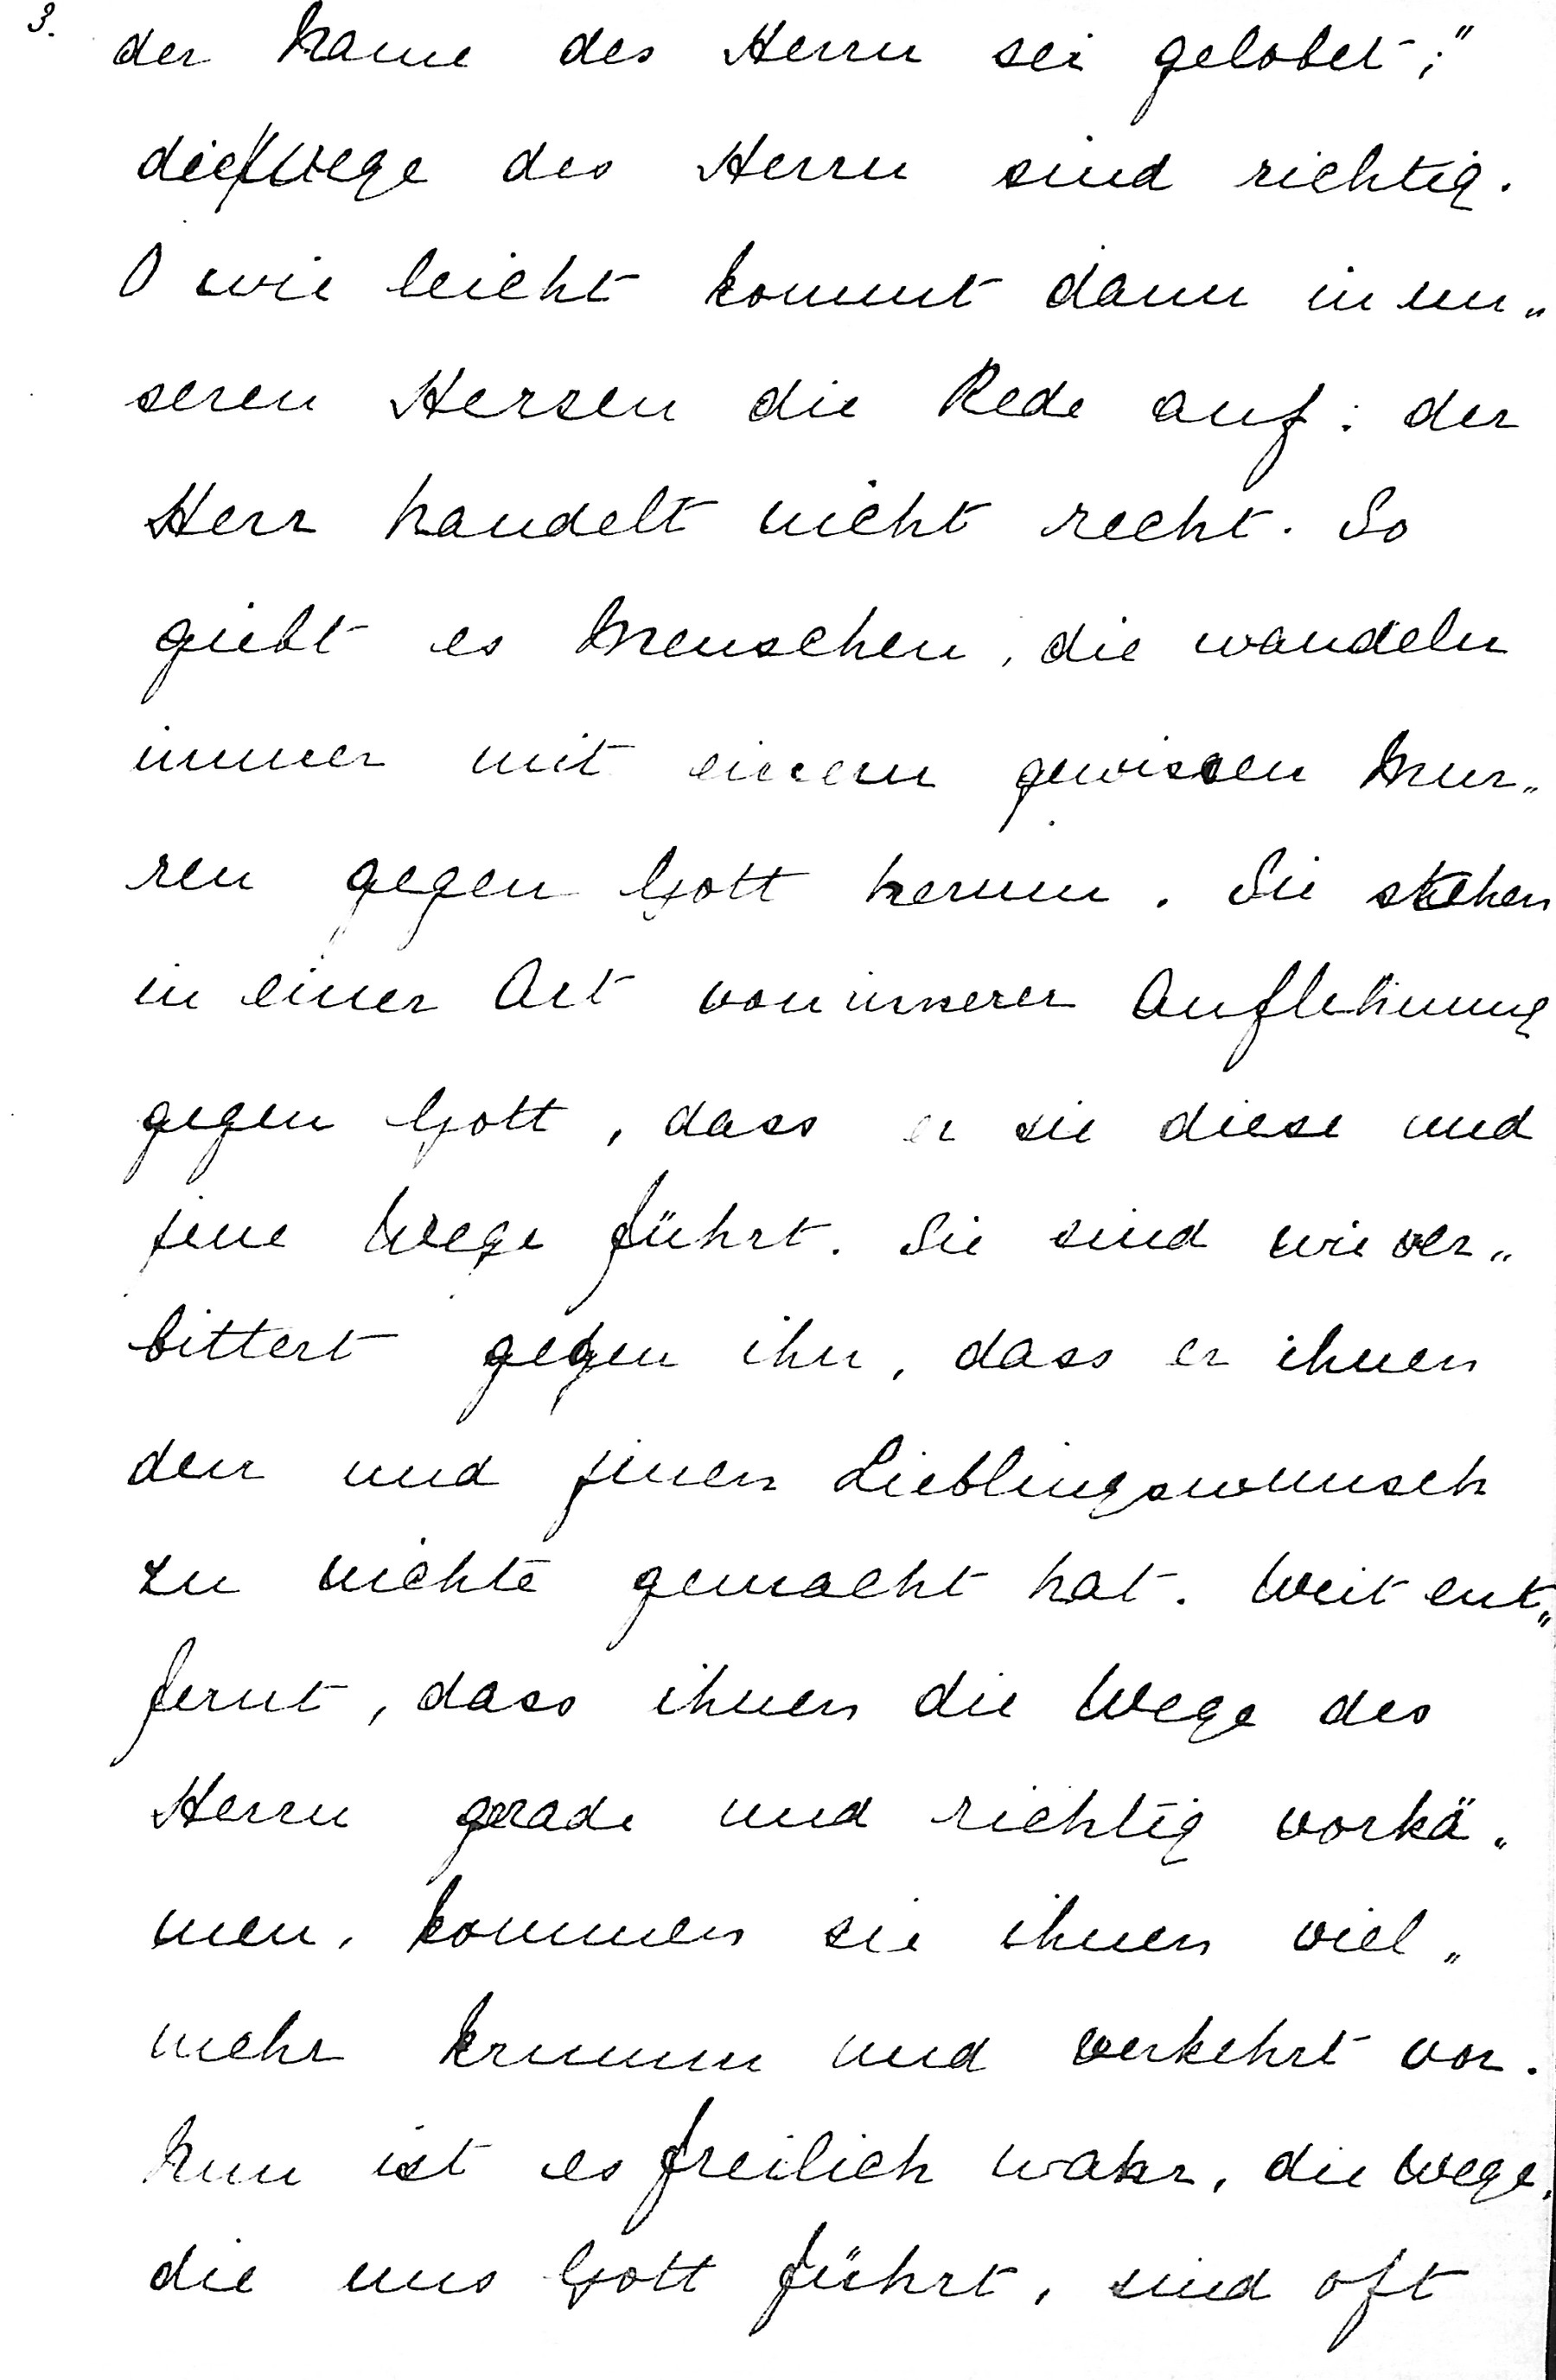 3. der Name des Herrn sei gelobet;"
die Wege des Herrn sind richtig.
O wie leicht kommt dann in un„
seren Herzen die Rede auf: der
Herr handelt nicht recht. So
giebt es Menschen, die wandeln
immer mit einem gewissen Mur„
ren gegen Gott herum. Sie stehen
in einer Art von innerer Auflehnung
gegen Gott, dass er sie diese und
jene Wege führt. Sie sind wie ver„
bittert gegen ihn, dass er ihnen
den und jenen Lieblingswunsch
zu nichte gemacht hat. Weit ent„
fernt, dass ihnen die Wege des
Herrn gerade und richtig vorkä„
men, kommen sie ihnen viel„
mehr krumm und verkehrt vor.
Nun ist es freilich wahr, die Wege,
die uns Gott führt, sind oft